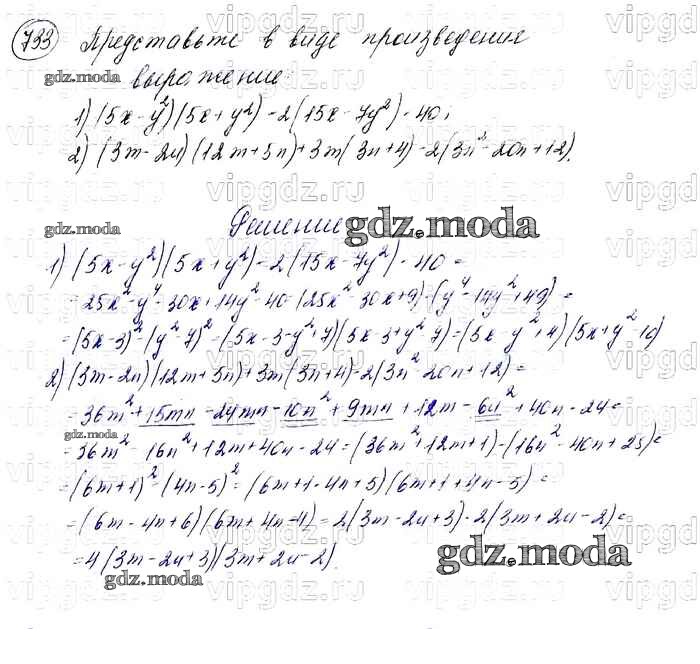 733 Представьте в виде произведения
выражение:
1) (5x - y²)(5x + y²) - 2(15x - 7y²) - 40;
2) (3m - 2n)(12m + 5n) + 3m(3n + 4) - 2(3n² - 20n + 12).
Решение
1) (5x - y²)(5x + y²) - 2(15x - 7y²) - 40 =
= 25x² - y⁴ - 30x + 14y² - 40 = (25x² - 30x + 9) - (y⁴ - 14y² + 49) =
= (5x - 3)² - (y² - 7)² = (5x - 3 - y² + 7)(5x - 3 + y² - 7) = (5x - y² + 4)(5x + y² - 10)
2) (3m - 2n)(12m + 5n) + 3m(3n + 4) - 2(3n² - 20n + 12) =
= 36m² + 15mn - 24mn - 10n² + 9mn + 12m - 6n² + 40n - 24 =
= 36m² - 16n² + 12m + 40n - 24 = (36m² + 12m + 1) - (16n² - 40n + 25) =
= (6m + 1)² - (4n - 5)² = (6m + 1 - 4n + 5)(6m + 1 + 4n - 5) =
= (6m - 4n + 6)(6m + 4n - 4) = 2(3m - 2n + 3) · 2(3m + 2n - 2) =
= 4(3m - 2n + 3)(3m + 2n - 2).
gdz.moda
gdz.moda
gdz.moda
gdz.moda
gdz.moda
gdz.moda
vipgdz.ru